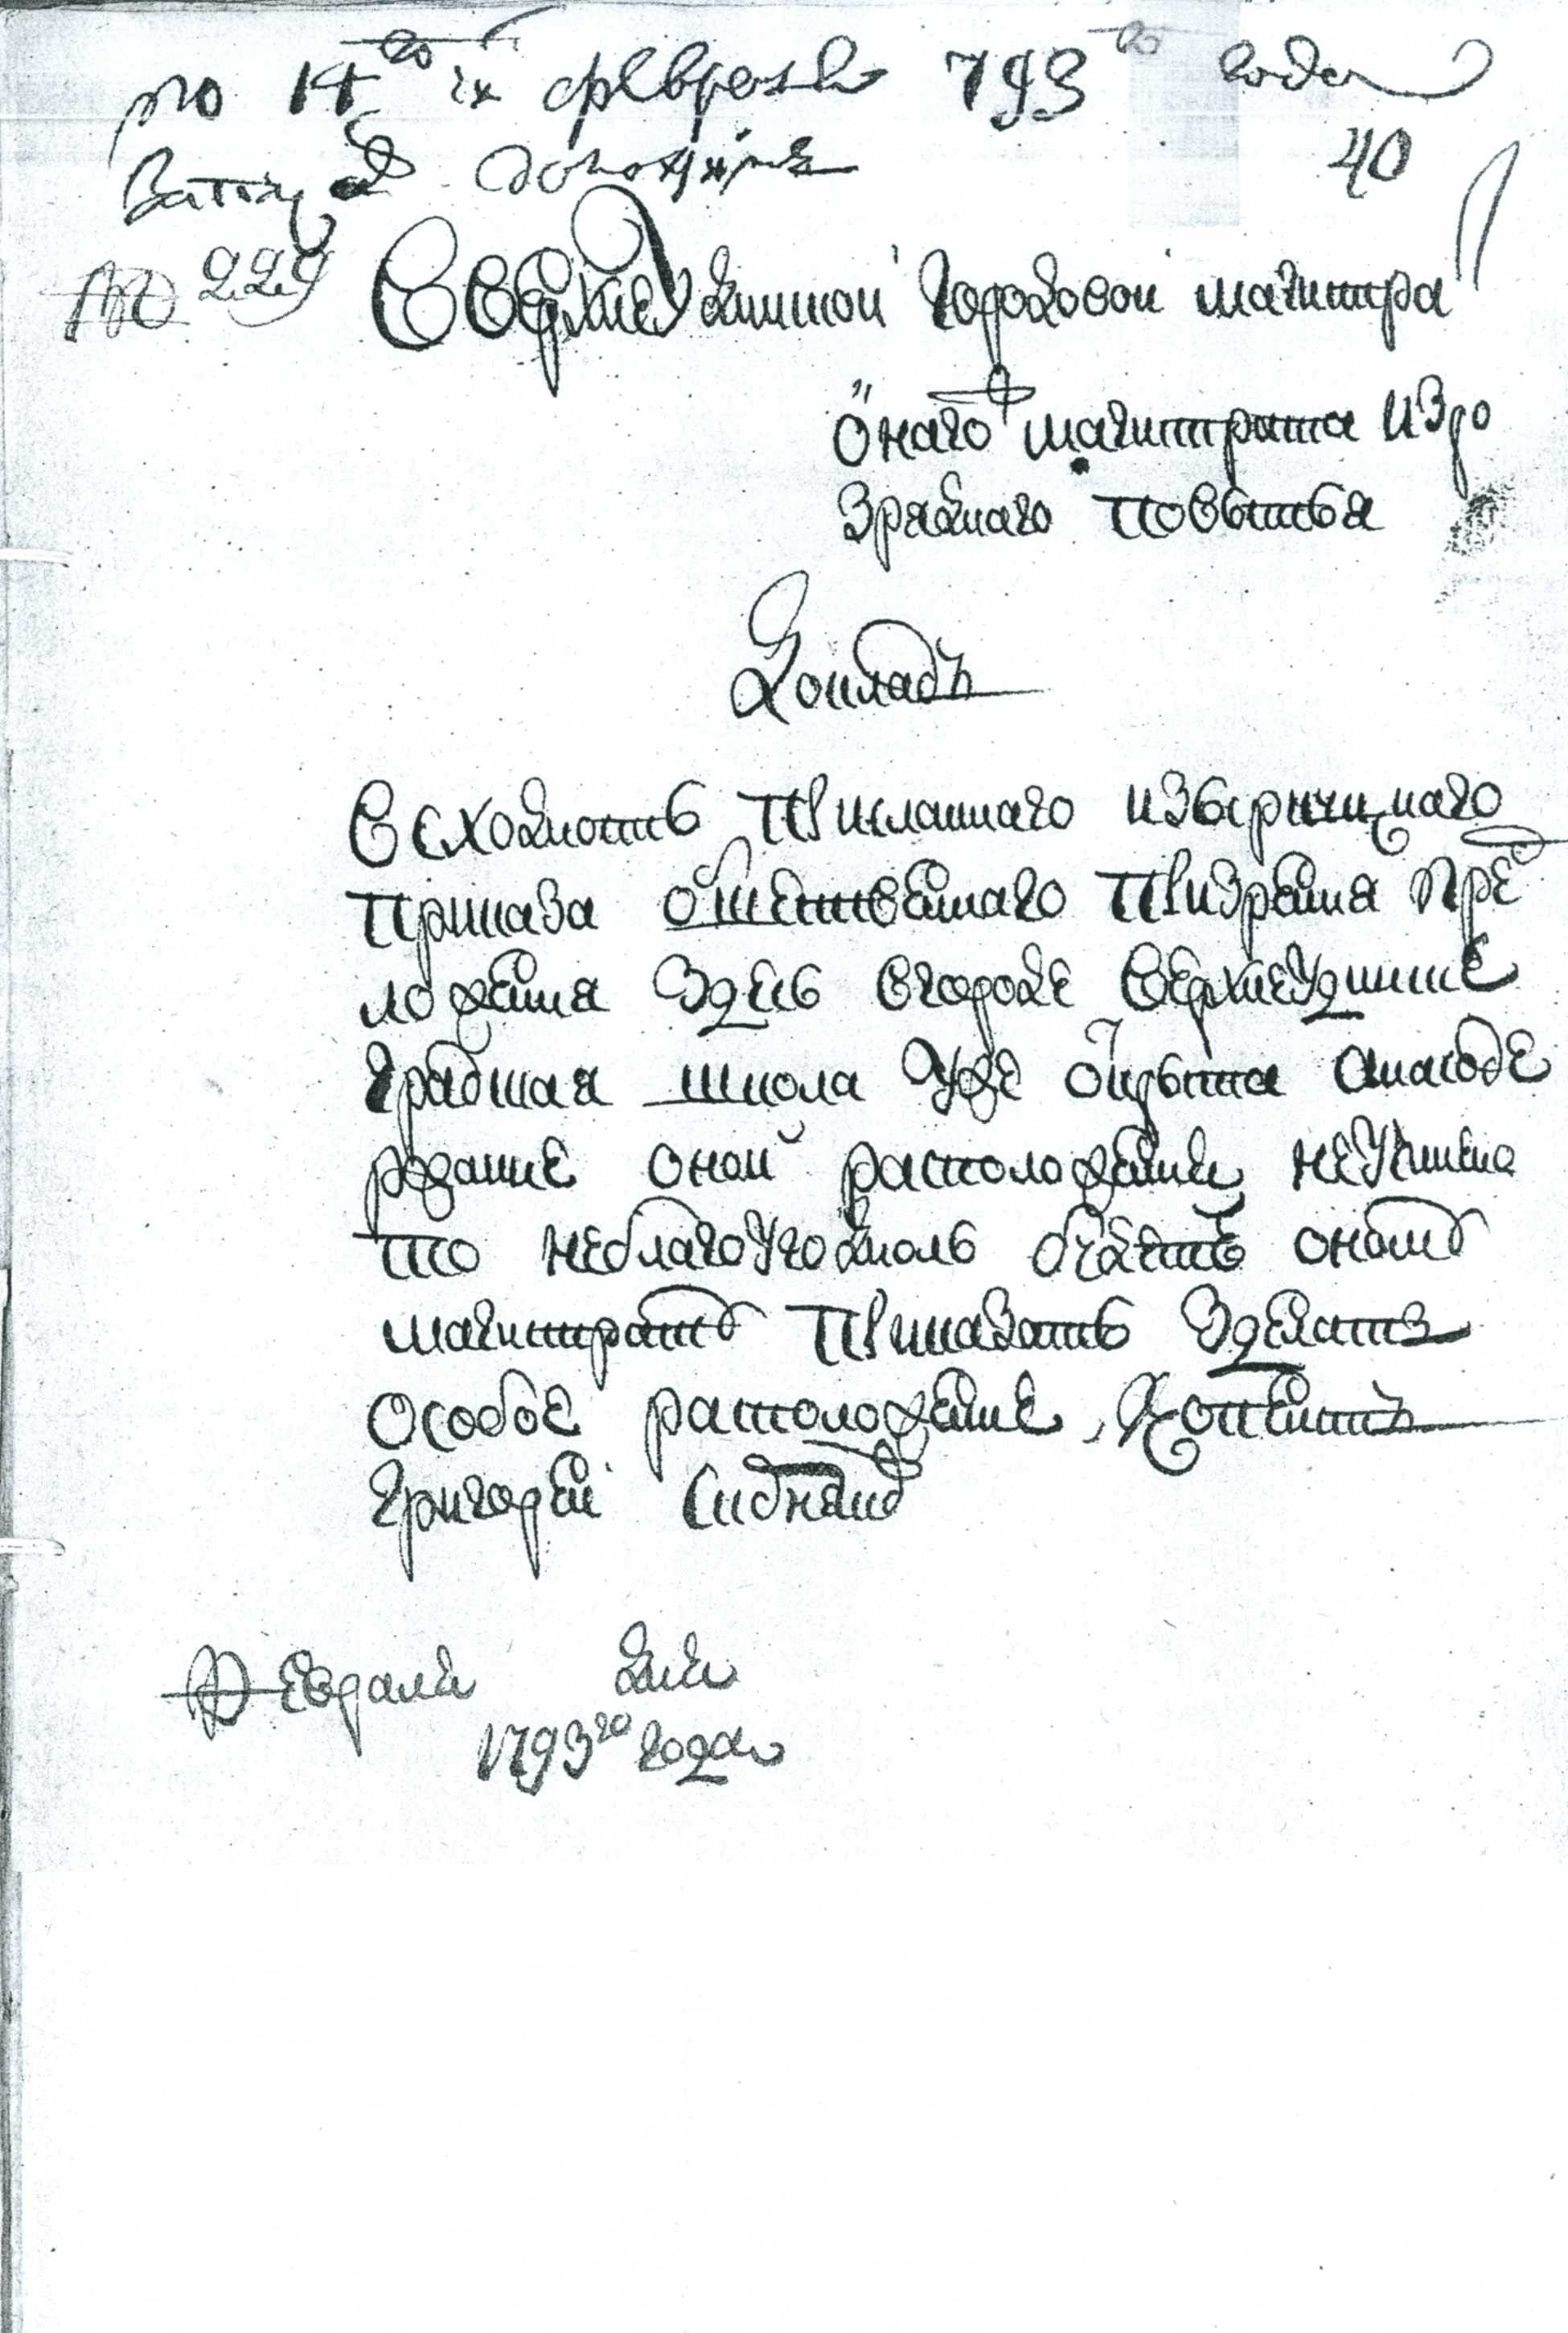 по 14 го февраля 793 го года
40
№ 229 В верхнеудинской городовой магистра
онаго магистрата из ро
зряднаго повытья
Докладъ
В сходность присланнаго
приказа общественнаго призрения пред
ложения здесь в городе Верхнеудинске
градская школа уже открыта а на содер
жание оной расположения не учинено
то не благоугодноль будетъ оному
магистрату приказать зделать
особое расположение, Копеистъ
Григорей
Февраля дня
1793 го года